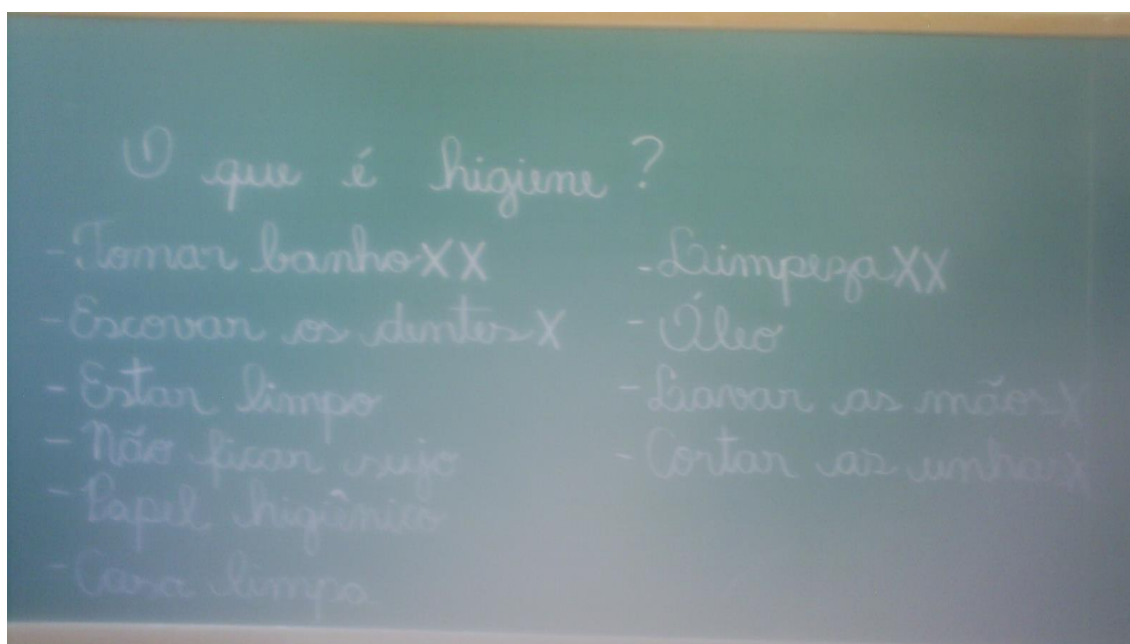 O que é higiene?
- Tomar banho XX
- Escovar os dentes X
- Estar limpo
- Não ficar sujo
- Papel higiênico
- Casa limpa
- Limpeza XX
- Óleo
- Lavar as mãos X
- Cortar as unhas X